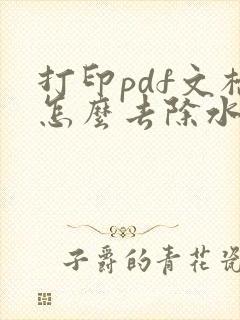 打印pdf文档
怎麼去除水
子爵的青花瓷